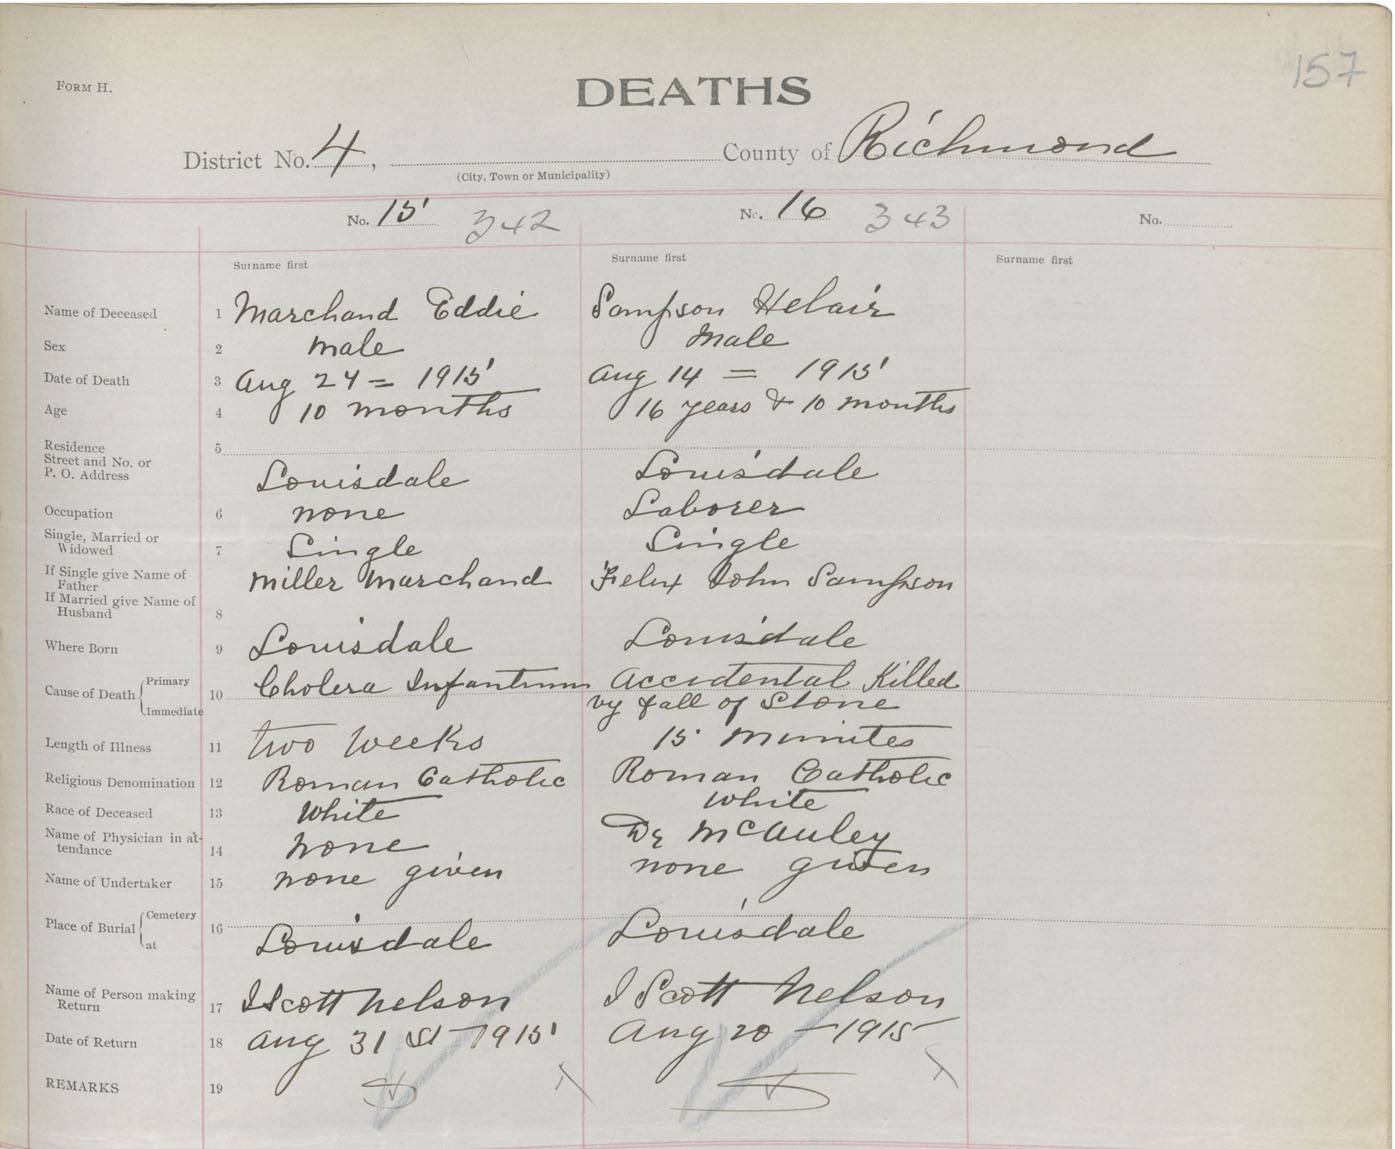 157
FORM H.
DEATHS
District No. 4, County of Richmond
(City, Town or Municipality)
No. 15 342 No. 16 343 No.
Surname first Surname first Surname first
Name of Deceased 1 Marchand Eddie Sampson Helair
Sex 2 Male Male
Date of Death 3 Aug 24 = 1915 Aug 14 = 1915
Age 4 10 months 16 years & 10 months
Residence 5
Street and No. or
P. O. Address Louisdale Louisdale
Occupation 6 none Laborer
Single, Married or
Widowed 7 Single Single
If Single give Name of
Father Miller Marchand Felix John Sampson
If Married give Name of
Husband 8
Where Born 9 Louisdale Louisdale
Cause of Death Primary 10 Cholera Infantum Accidental Killed
Immediate by fall of Stone
Length of Illness 11 two weeks 15 minutes
Religious Denomination 12 Roman Catholic Roman Catholic
Race of Deceased 13 White White
Name of Physician in at-
tendance 14 None Dr McAuley
Name of Undertaker 15 none given none given
Place of Burial Cemetery 16
at Louisdale Louisdale
Name of Person making
Return 17 J Scott Nelson J Scott Nelson
Date of Return 18 Aug 31 St 1915 Aug 20 - 1915
REMARKS 19